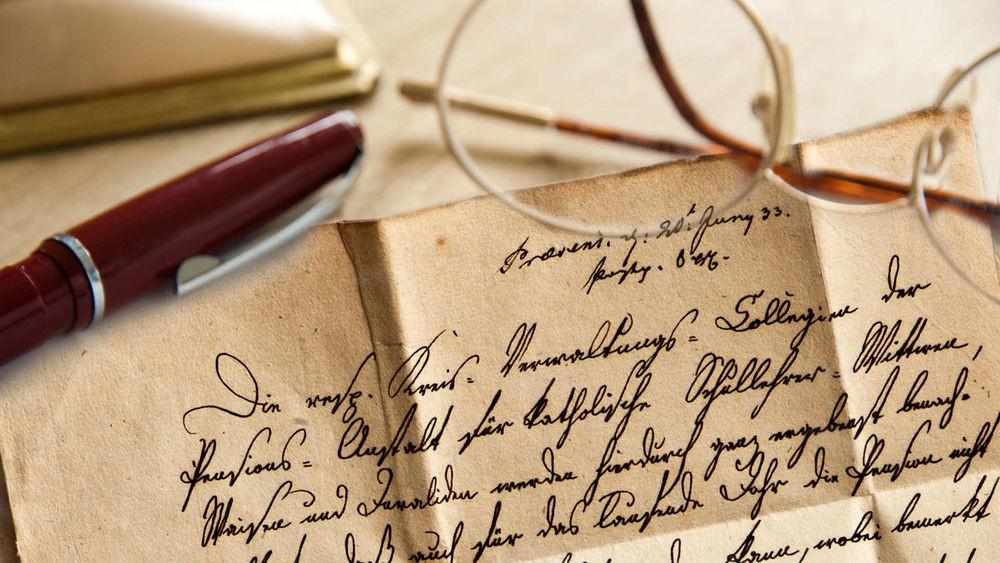 Præsent. d. 20t Juny 33.
Die resp. Kreis= Verwaltungs= Collegien der
Pensions= Anstalt für katholische Schullehrer= Wittwen,
Waisen und Invaliden werden hierdurch ganz ergebenst benach=
daß auch für das laufende Jahr die Pension nicht
kann, wobei bemerkt